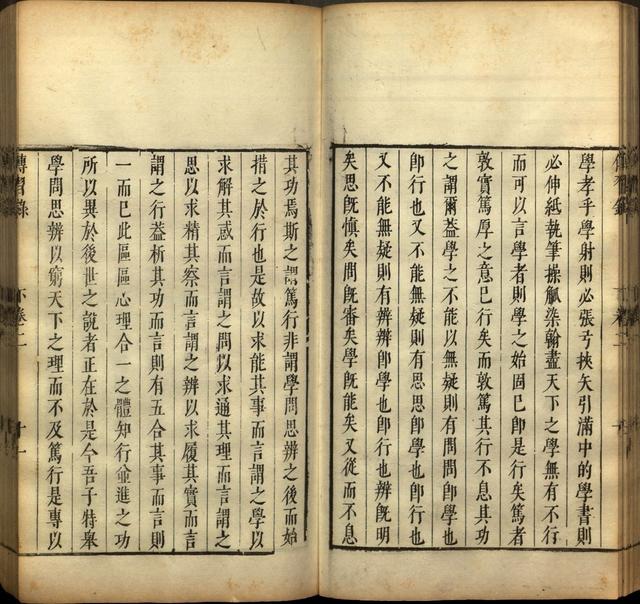 學孝乎學射則必張弓挾矢引滿中的學書則
必伸紙執筆操觚染翰盡天下之學無有不行
而可以言學者則學之始固已即是行矣篤者
敦實篤厚之意已行矣而敦篤其行不息其功
之謂爾葢學之不能以無疑則有問問即學也
即行也又不能無疑則有思思即學也即行也
又不能無疑則有辨辨即學也即行也辨旣明
矣思旣慎矣問旣審矣學旣能矣又從而不息
其功焉斯之謂篤行非謂學問思辨之後而始
措之於行也是故以求能其事而言謂之學以
求解其惑而言謂之問以求通其理而言謂之
思以求精其察而言謂之辨以求履其實而言
謂之行葢析其功而言則有五合其事而言則
一而已此區區心理合一之體知行竝進之功
所以異於後世之說者正在於是今吾子特舉
學問思辨以窮天下之理而不及篤行是專以
傳習錄 下卷二 十一